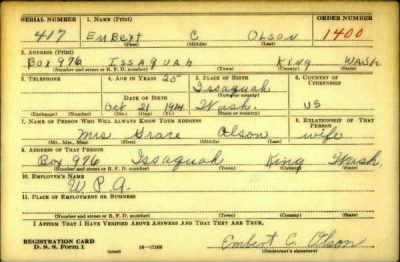 SERIAL NUMBER 1. NAME (Print) ORDER NUMBER
417 Embert C OLSON 1400
(First) (Middle) (Last)
2. ADDRESS (Print)
BOX 976 ISSAQUAH KING WASH
(Number and street or R. F. D. number) (Town) (County) (State)
3. TELEPHONE 4. AGE IN YEARS 5. PLACE OF BIRTH 6. COUNTRY OF CITIZENSHIP
25 Issaquah
DATE OF BIRTH (Town or county)
Oct 21 1914 Wash. US
(Exchange) (No.) (Mo.) (Day) (Yr.) (State or country)
7. NAME OF PERSON WHO WILL ALWAYS KNOW YOUR ADDRESS 8. RELATIONSHIP OF THAT PERSON
Mrs Grace Olson wife
(Mr., Mrs., Miss) (First) (Middle) (Last)
9. ADDRESS OF THAT PERSON
Box 976 Issaquah King Wash.
(Number and street or R. F. D. number) (Town) (County) (State)
10. EMPLOYER'S NAME
W.P.A.
11. PLACE OF EMPLOYMENT OR BUSINESS
(Number and street or R. F. D. number) (Town) (County) (State)
I AFFIRM THAT I HAVE VERIFIED ABOVE ANSWERS AND THAT THEY ARE TRUE.
REGISTRATION CARD
D. S. S. Form 1 (over) 16—17105 Embert C. Olson
(Registrant's signature)